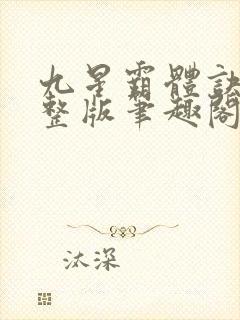 九星霸體訣
整版筆趣閣
汰深